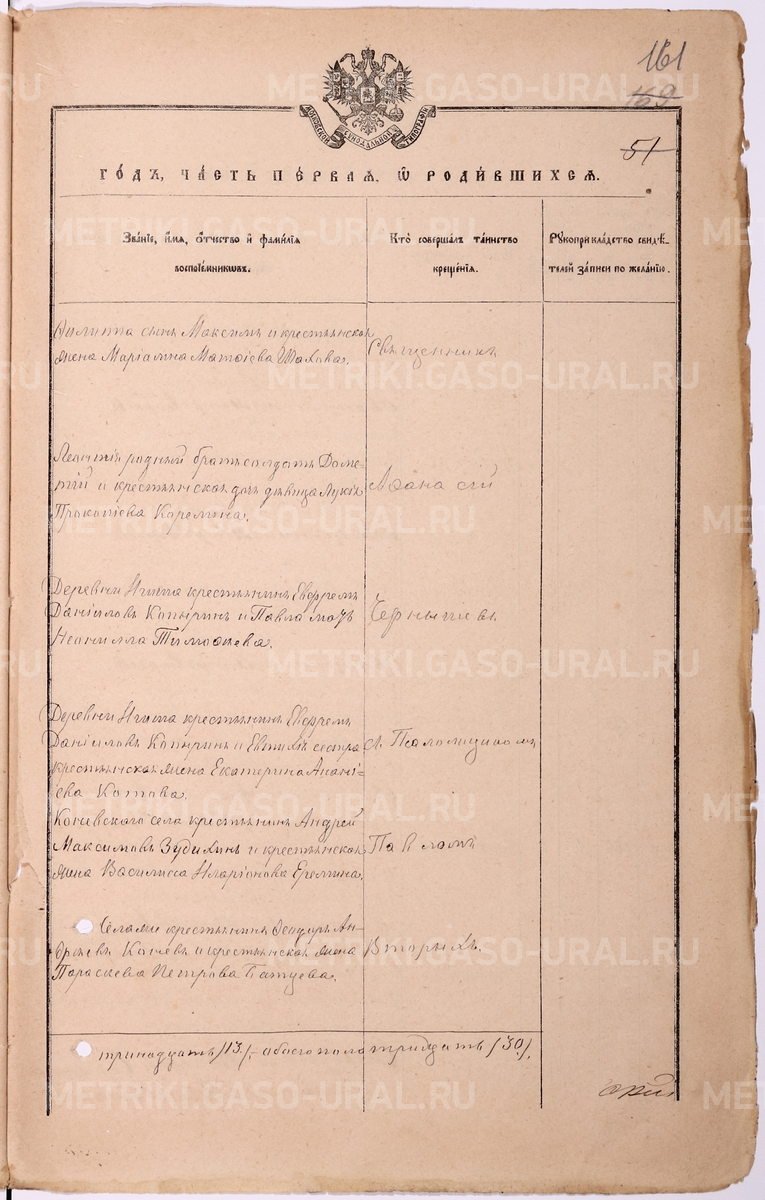 161
169
51
МОСКОВСКОЙ СѴНОДАЛЬНОЙ ТИПОГРАФІИ
ГОДЪ, ЧАСТЬ ПЕРВАЯ, Ѡ РОДИВШИХСЯ.
Званіе, имя, отчество и фамилія
воспріемниковъ.
Кто совершалъ таинство
крещенія.
Рукоприкладство свидѣ-
телей записи по желанію.
Филиппа сынъ Максимъ и крестьянская
жена Маріамна Матвіева Шахова.
Священникъ
родный братъ солдатъ Доме-
тій и крестьянская дочь дѣвица
Прокопіева Корелина.
Аѳанасій
Деревни крестьянинъ Евфремъ
Даніиловъ Копыринъ и Павла мать
Неонилла Тимоѳеева.
Чернышевъ
Деревни крестьянинъ Евфремъ
Даніиловъ Копыринъ и сестра
крестьянская жена Екатерина Анані-
ева Котова.
съ Псаломщикомъ
Коневскаго села крестьянинъ Андрей
Максимовъ Зубилинъ и крестьянская
жена Василисса Иларіонова Еремина.
Павломъ
Села крестьянинъ Ѳеодоръ Ан-
дреевъ Коневъ и крестьянская жена
Параскева Петрова
Вторыхъ.
тринадцать /13/, обоего пола тридцать /30/.
METRIKI.GASO-URAL.RU